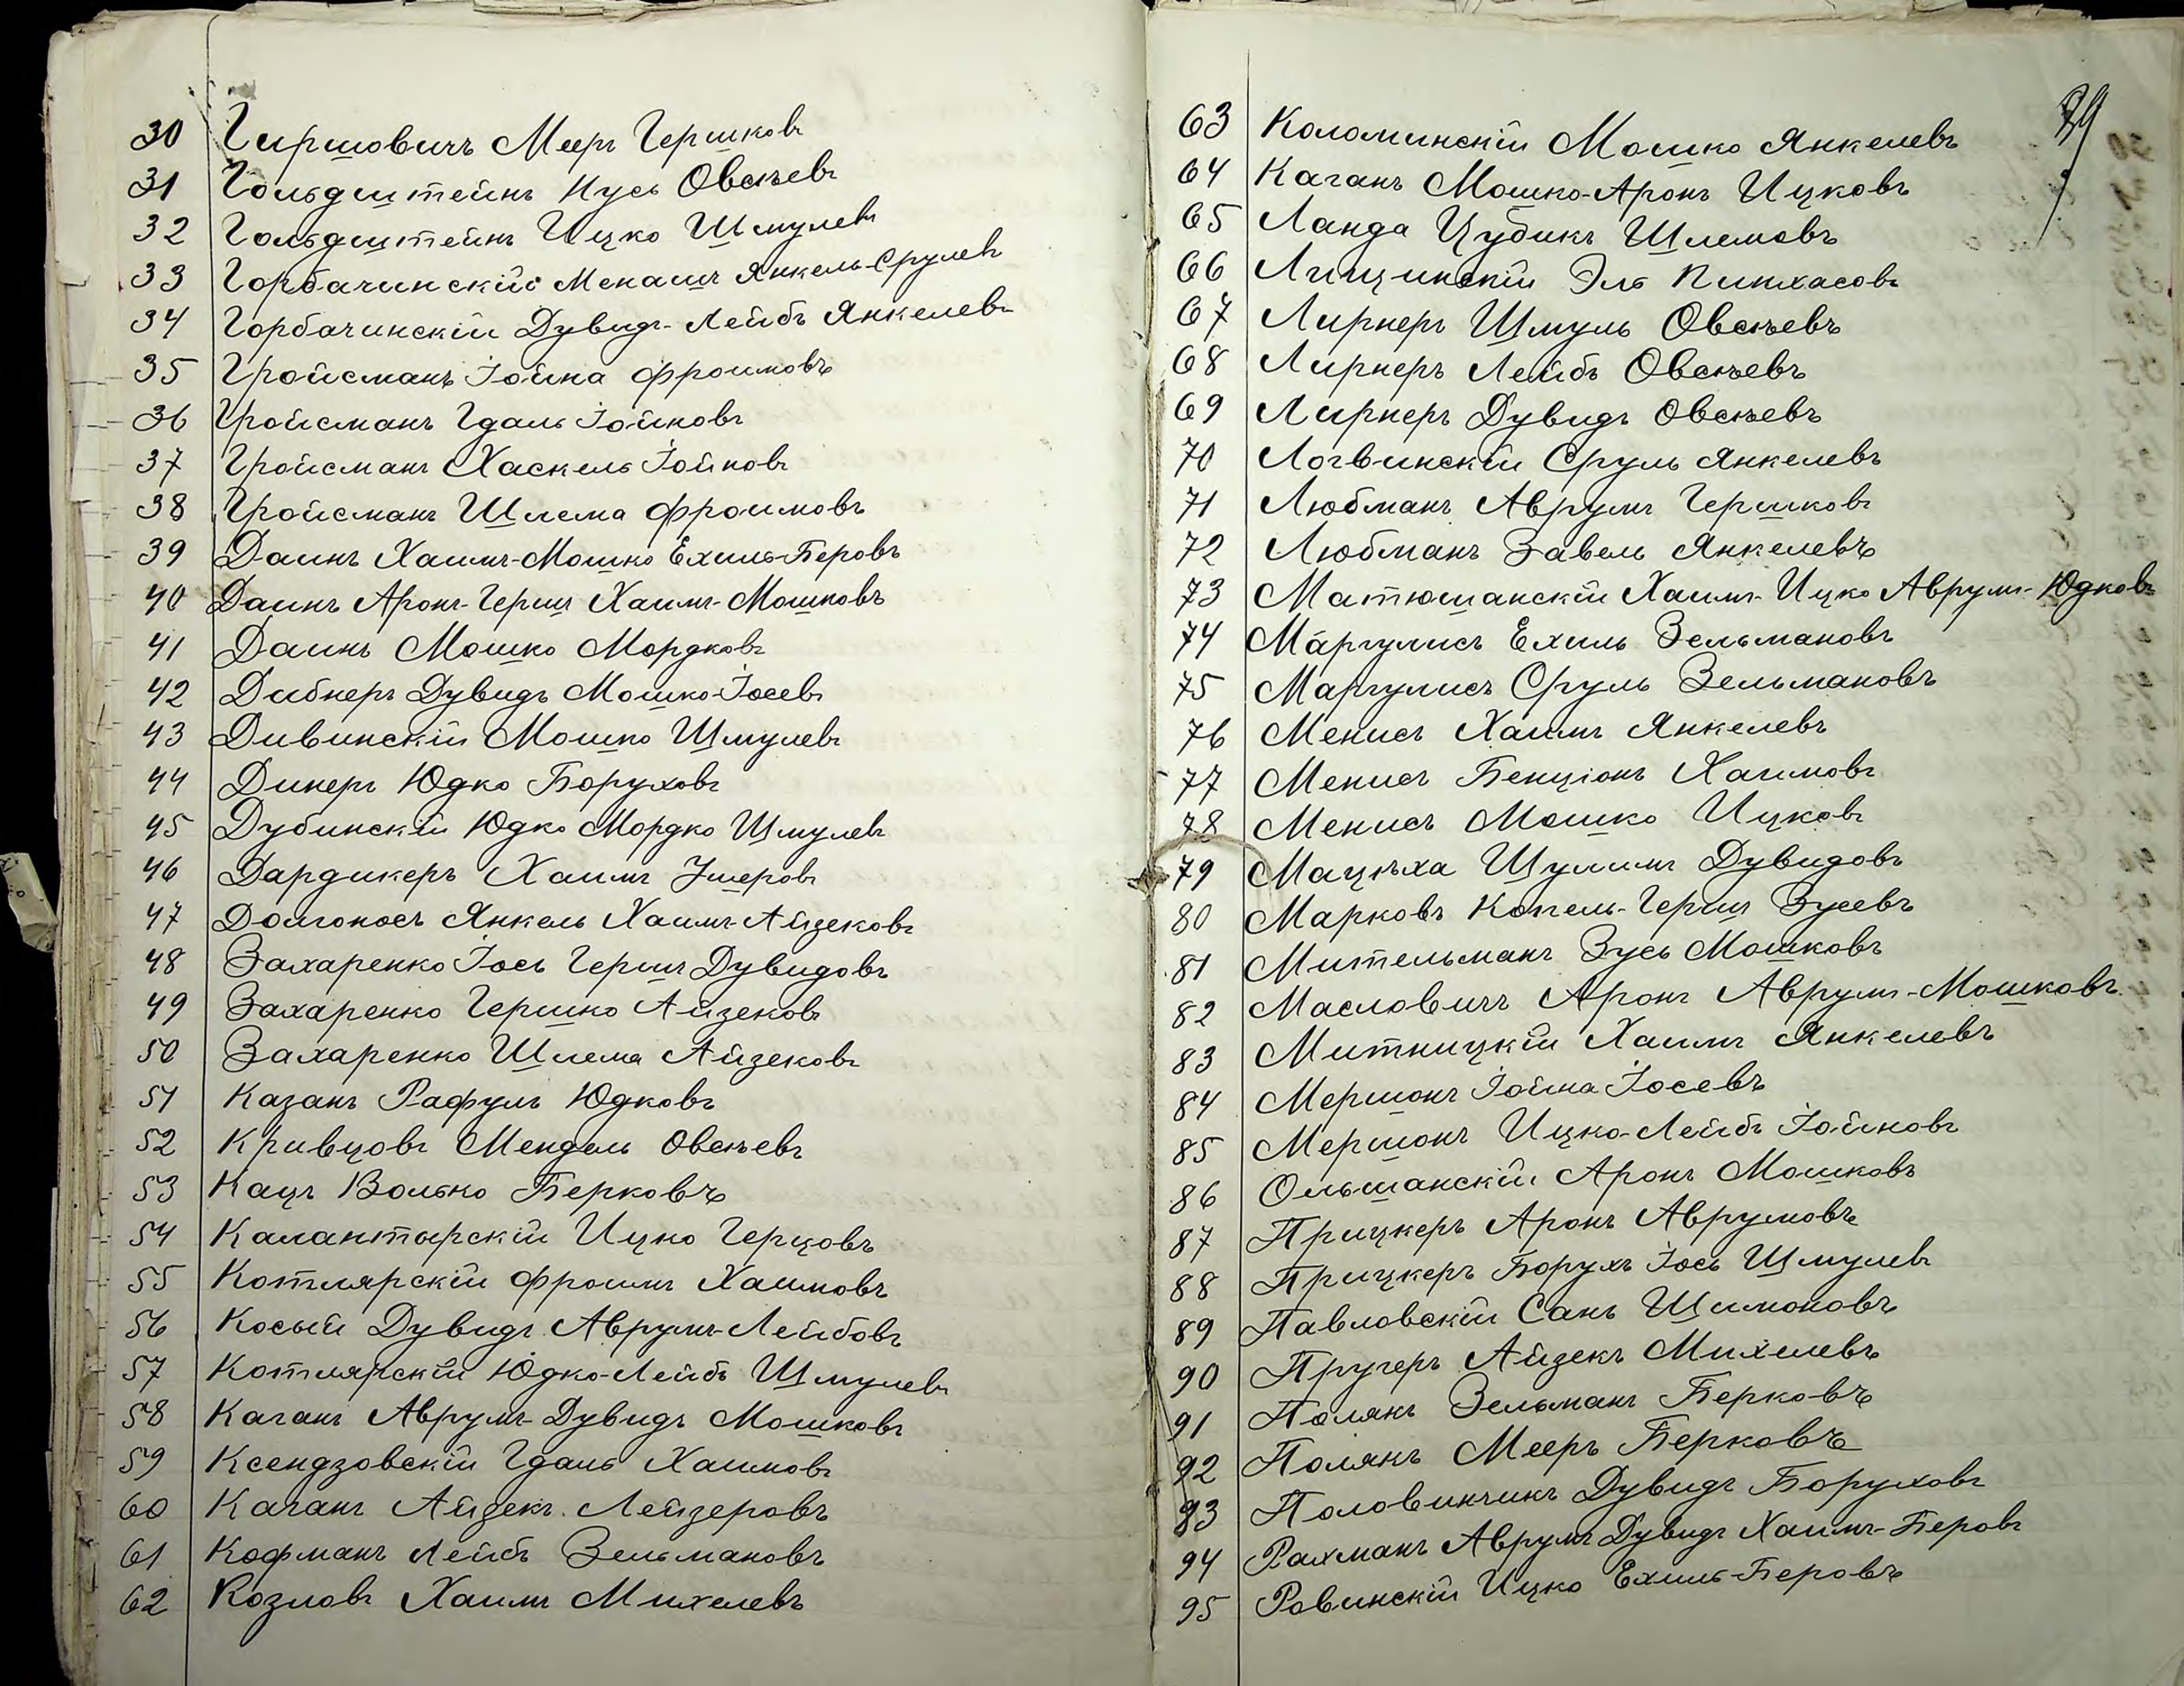 30 Гиршовичъ Мееръ Гершковъ
31 Гольдштейнъ Нусь Овсѣевъ
32 Гольдштейнъ Ицко Шмулевъ
33 Горбачинскій Менашъ Янкель-Срулевъ
34 Горбачинскій Дувидъ-Лейбъ Янкелевъ
35 Гройсманъ Іойна Фроимовъ
36 Гройсманъ Гдаль Іойновъ
37 Гройсманъ Хаскель Іойновъ
38 Гройсманъ Шлема Фроимовъ
39 Даинъ Хаимъ-Мошко Ехиль-Беровъ
40 Даинъ Аронъ-Гершъ Хаимъ-Мошковъ
41 Даинъ Мошко Мордковъ
42 Дибнеръ Дувидъ Мошко-Іосевъ
43 Дивинскій Мошко Шмулевъ
44 Динеръ Юдко Боруховъ
45 Дубинскій Юдко Мордко Шмулевъ
46 Дардикеръ Хаимъ Ушеровъ
47 Долгоносъ Янкель Хаимъ-Айзековъ
48 Захаренко Іось Гершъ Дувидовъ
49 Захаренко Гершко Айзековъ
50 Захаренко Шлема Айзековъ
51 Казанъ Рафулъ Юдковъ
52 Кривцовъ Мендель Овсѣевъ
53 Кацъ Волько Берковъ
54 Калантырскій Ицко Герцовъ
55 Котлярскій Фроимъ Хаимовъ
56 Косый Дувидъ Аврумъ-Лейбовъ
57 Котлярскій Юдко-Лейбъ Шмулевъ
58 Каганъ Аврумъ-Дувидъ Мошковъ
59 Ксендзовскій Гдаль Хаимовъ
60 Каганъ Айзекъ Лейзеровъ
61 Кофманъ Лейбъ Зельмановъ
62 Козловъ Хаимъ Михелевъ
63 Коломинскій Мошко Янкелевъ
64 Каганъ Мошко-Аронъ Ицковъ
65 Ланда Цубикъ Шлемовъ
66 Лищинскій Эль Пинхасовъ
67 Лирнеръ Шмуль Овсѣевъ
68 Лирнеръ Лейбъ Овсѣевъ
69 Лирнеръ Дувидъ Овсѣевъ
70 Логвинскій Сруль Янкелевъ
71 Любманъ Аврумъ Гершковъ
72 Любманъ Завель Янкелевъ
73 Матюшанскій Хаимъ-Ицко Аврумъ-Юдковъ
74 Маргулисъ Ехиль Зельмановъ
75 Маргулисъ Сруль Зельмановъ
76 Менисъ Хаимъ Янкелевъ
77 Менисъ Бенціонъ Хаимовъ
78 Менисъ Мошко Ицковъ
79 Мацѣха Шулимъ Дувидовъ
80 Марковъ Копель-Гершъ Зусевъ
81 Мительманъ Зусь Мошковъ
82 Масловичъ Аронъ Аврумъ-Мошковъ
83 Митницкій Хаимъ Янкелевъ
84 Мершонъ Іойна Іосевъ
85 Мершонъ Ицко-Лейбъ Іойновъ
86 Ольшанскій Аронъ Мошковъ
87 Прицкеръ Аронъ Аврумовъ
88 Прицкеръ Борухъ Іось Шмулевъ
89 Павловскій Санъ Шимоновъ
90 Пругеръ Айзекъ Михелевъ
91 Полякъ Зельманъ Берковъ
92 Полякъ Мееръ Берковъ
93 Половинчикъ Дувидъ Боруховъ
94 Рахманъ Аврумъ Дувидъ Хаимъ-Беровъ
95 Ровинскій Ицко Ехиль-Беровъ